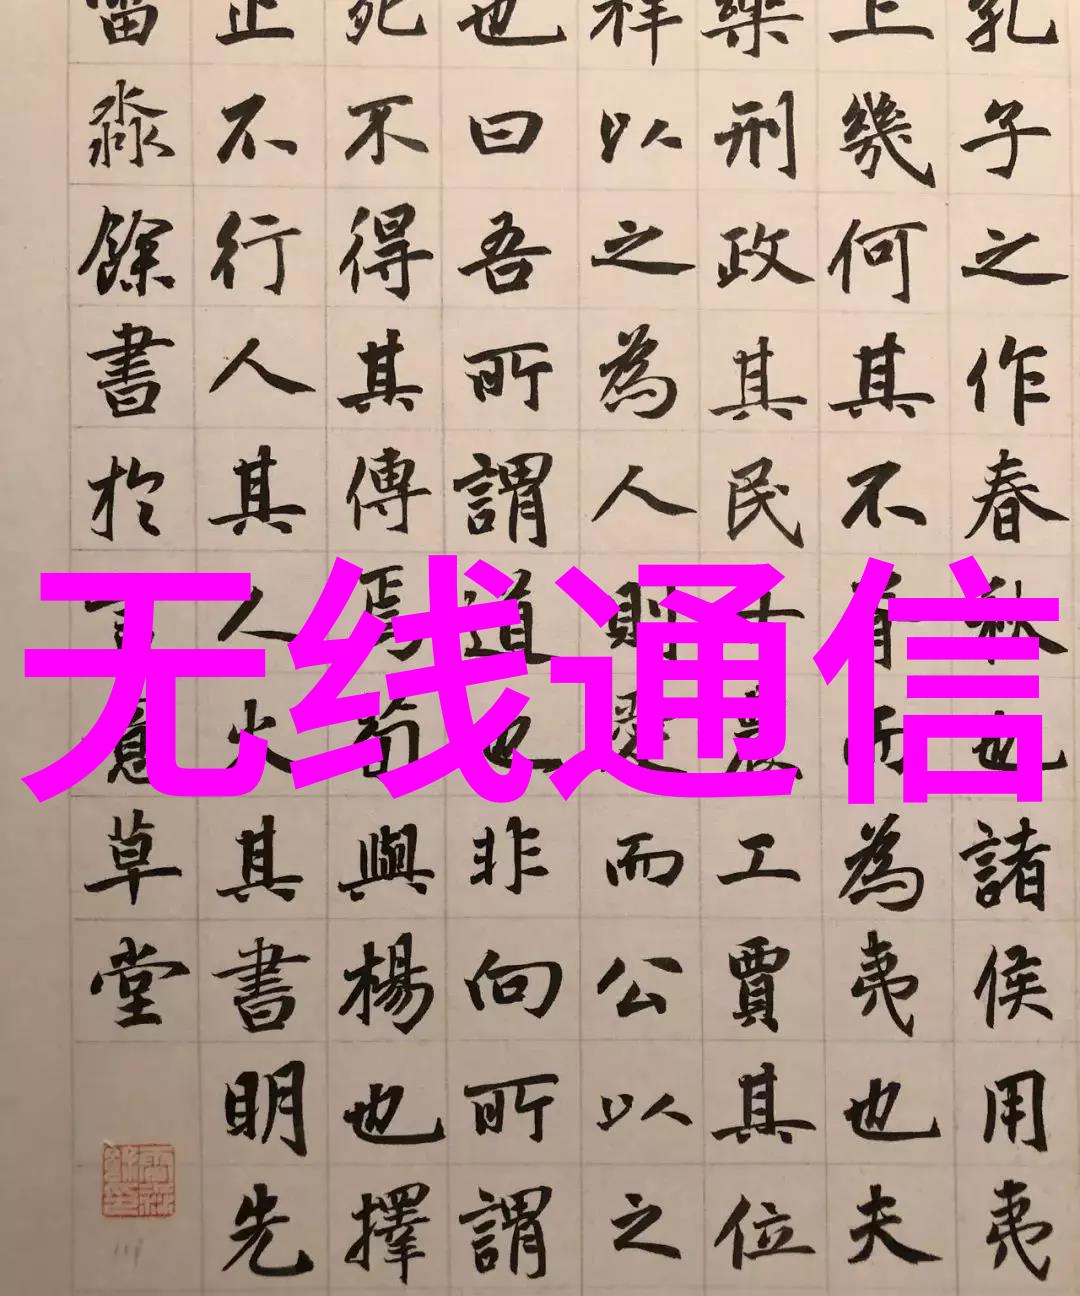 孔子之作春秋也諸侯用夷
上幾何其不胥而為夷也夫
樂刑政其民士農工賈其位
祥以之為人則愛而公以之
也曰吾所謂道也非向所謂
死不得其傳焉荀與楊也擇
止不行人其人火其書明先
淼餘書於意草堂
无线通信